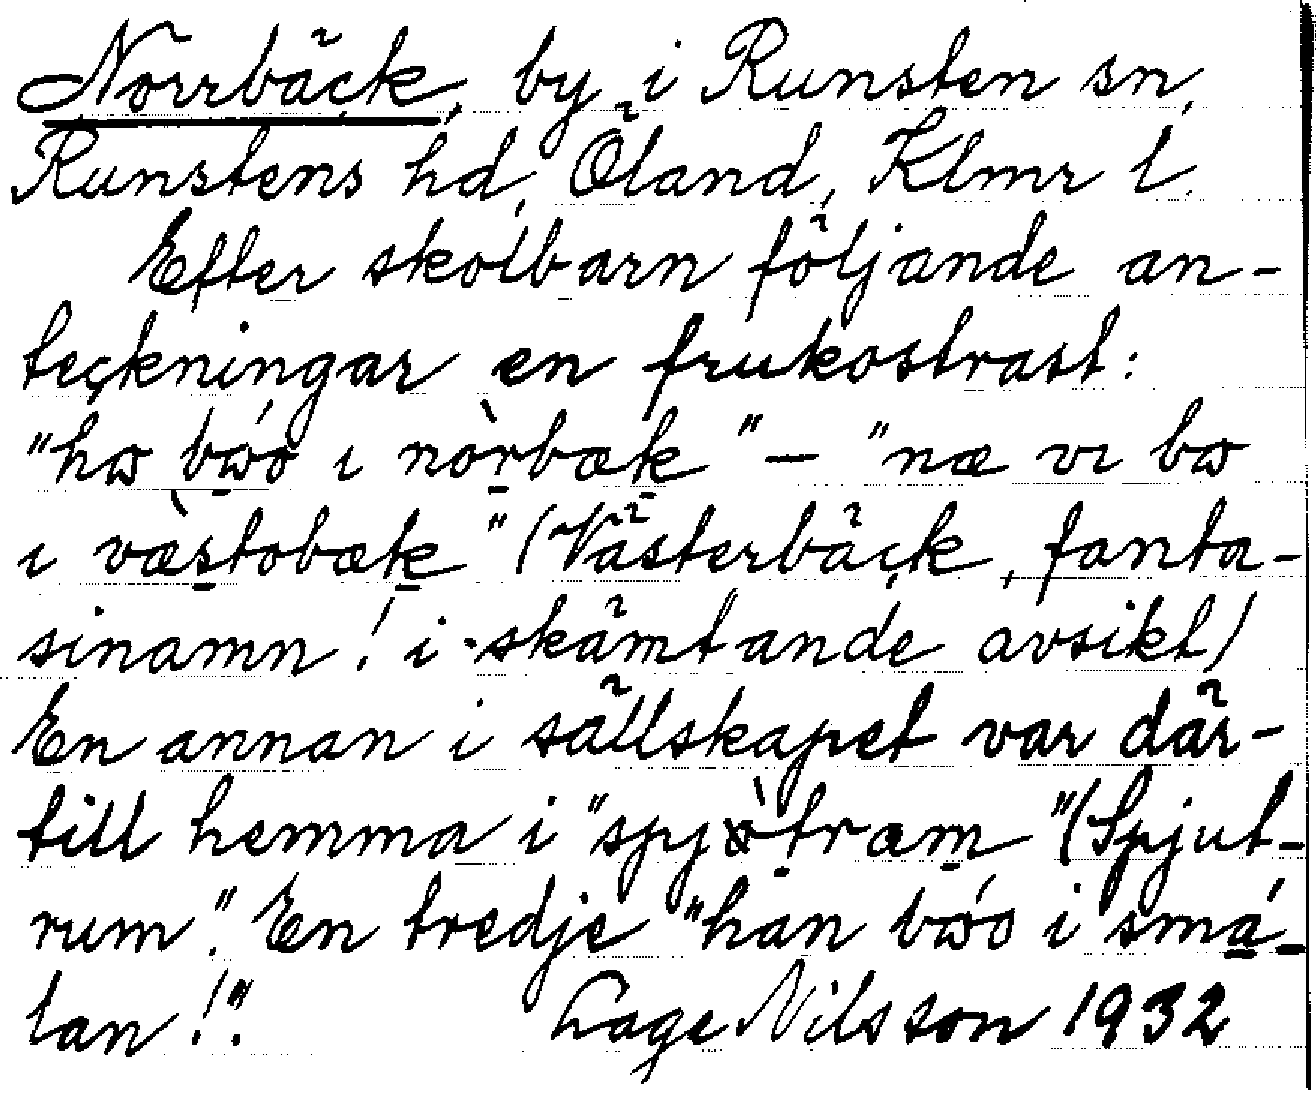 Norrbäck, by i Runsten sn,
Runstens hd, Öland, Klmr l.
Efter skolbarn följande an-
teckningar en frukostrast:
"hɷ bɷ́o ı nòrbæk" – "næ vı bɷ
ı væ̀stobæk" (Västerbäck, fanta-
sinamn! i skämtande avsikt)
En annan i sällskapet var där-
till hemma i "spjɷ̀træm" (Spjut-
rum". En tredje "han bɷ́o i små-
lan!".
Lage Nilsson 1932